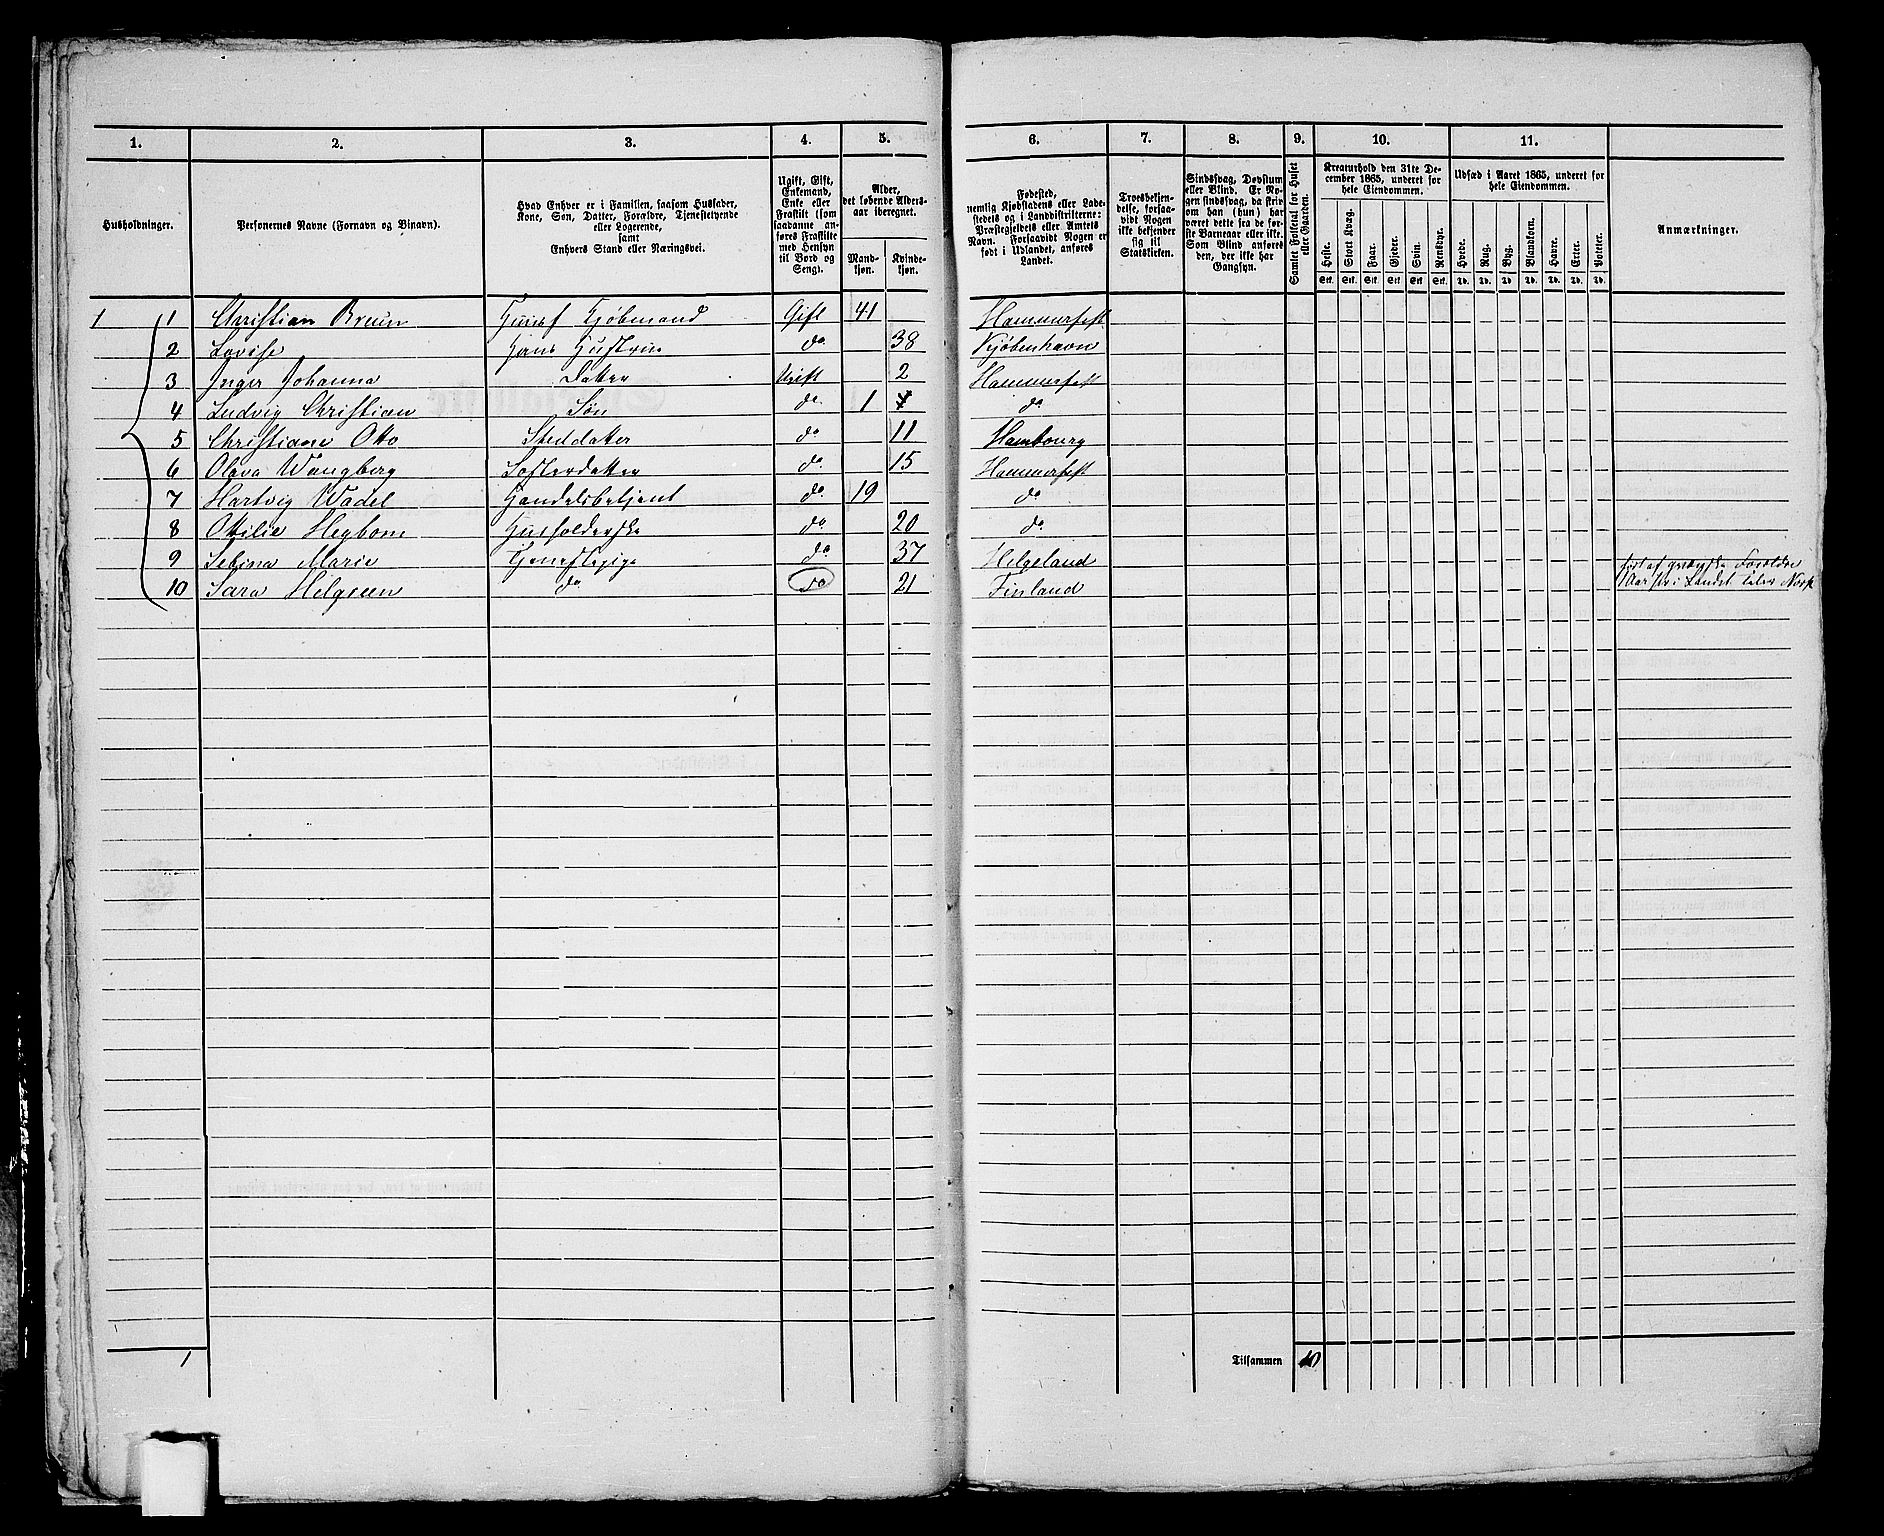 1. 2. 3. 4. 5. 6. 7. 8. 9. 10. 11.
Husholdninger.
Personernes Navne (Fornavn og Binavn).
Hvad Enhver er i Familien, saasom Husfader,
Kone, Søn, Datter, Forældre, Tjenestetyende
eller Logerende,
samt
Enhvers Stand eller Næringsvei.
Ugift, Gift,
Enkemand,
Enke eller
Fraskilt (som
saadanne an-
føres Fraskilte
med Hensyn
til Bord og
Seng).
Alder,
det løbende Alders-
aar iberegnet.
Mand-
kjøn.
Kvinde-
kjøn.
Fødested,
nemlig Kjøbstadens eller Lade-
stedets og i Landdistrikterne:
Præstegjeldets eller Amtets
Navn. Forsaavidt Nogen er
født i Udlandet, anføres
Landet.
Troesbekjen-
delse, forsaa-
vidt Nogen
ikke bekjender
sig til
Statskirken.
Sindssvag, Døvstum
eller Blind. Er No-
gen sindssvag, da skriv
om han (hun) har
været dette fra de før-
ste Barneaar eller ikke.
Som Blind anføres
den, der ikke har
Gangsyn.
Samlet Folketal for Huset
eller Gaarden.
Kreaturhold den 31te De-
cember 1865, underet for
hele Eiendommen.
Heste. Stort Kvæg. Faar. Gjeder. Svin. Rensdyr.
Stk. Stk. Stk. Stk. Stk. Stk.
Udsæd i Aaret 1865, underet for
hele Eiendommen.
Hvede. Rug. Byg. Blandkorn. Havre. Erter. Poteter.
Td. Td. Td. Td. Td. Td. Td.
Anmærkninger.
1 1 Christian Bruun Huusf Kjøbmand Gift 41 Hammerfest
2 Lovise Hans Hustru do 38 Kjøbenhavn
3 Inger Johanna Datter Ugift 2 Hammerfest
4 Ludvig Christian Søn do 1 do
5 Christiane Otto Steddatter do 11 Hambourg
6 Olava Wangberg Søsterdatter do 15 Hammerfest
7 Hartvig Wadel Handelsbetjent do 19 do
8 Ottilie Hegbom Husholderske do 20 do
9 Selina Marie Tjenestepige do 37 Helgeland
10 Sara Helgesen do do 21 Finland
født af qvænske Forældre
Aar her i Landet taler Norsk
1
Tilsammen 10